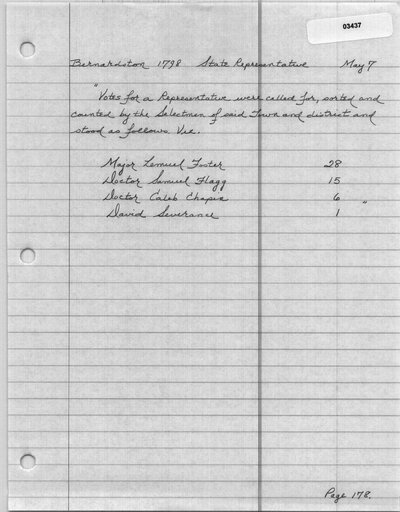 03437
Bernardston 1798 State Representative May 7
"Votes for a Representative were called for, sorted and
counted by the Selectmen of said Town and district and
stood as follows Viz.
Major Lemuel Foster 28
Doctor Samuel Flagg 15
Doctor Caleb Chapin 6 "
David Severance 1
Page 178.